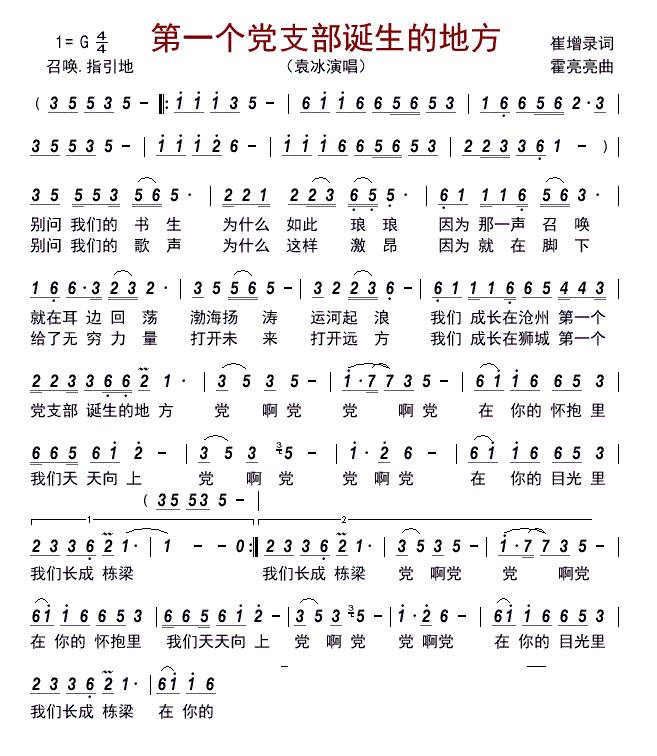 第一个党支部诞生的地方
1= G 4/4
崔增录词
召唤.指引地
（袁冰演唱）
霍亮亮曲
( 3 5 5 3 5 – ‖: i i i 3 5 – | 6 i i 6 6 5 6 5 3 | 1 6 6 5 6 2·3 |
3 5 5 3 5 – | i i i 2 6 – | i i i 6 6 5 6 5 3 | 2 2 3 3 6 1 – ) |
3 5 5 5 3 5 6 5· | 2 2 1 2 2 3 6 5 5· | 6 1 1 1 6 5 6 3· |
别问 我们的 书 生 为什么 如此 琅 琅 因为 那一声 召 唤
别问 我们的 歌 声 为什么 这样 激 昂 因为 就 在 脚 下
1 6 6·3 2 3 2· | 3 5 5 6 5 – | 3 2 2 3 6 – | 6 1 1 1 6 5 4 4 3 |
就在耳 边 回 荡 渤海扬 涛 运河起 浪 我们 成长在沧州 第一个
给了无 穷 力 量 打开未 来 打开远 方 我们 成长在狮城 第一个
2 2 3 3 6 6 2 1· | 3 5 3 5 – | i·7 7 3 5 – | 6 i i 6 6 5 3 |
党支部 诞生的地 方 党 啊 党 党 啊 党 在 你的 怀抱 里
6 6 5 6 i 2 – | 3 5 3 5 – | i·2 6 – | 6 i i 6 6 5 3 |
我们天 天向 上 党 啊 党 党 啊 党 在 你的 目光 里
( 3 5 5 3 5 – |
1 2
2 3 3 6 2 1· | 1 – – 0 :‖ 2 3 3 6 2 1· | 3 5 3 5 – | i·7 7 3 5 – |
我们长成 栋梁 我们长成 栋梁 党 啊党 党 啊党
6 i i 6 6 5 3 | 6 6 5 6 i 2 – | 3 5 3 5 – | i·2 6 – | 6 i i 6 6 5 3 |
在 你的 怀抱里 我们天天向 上 党 啊 党 党 啊党 在 你的 目光里
2 3 3 6 2 1· | 6 i i 6
我们长成 栋梁 在 你的